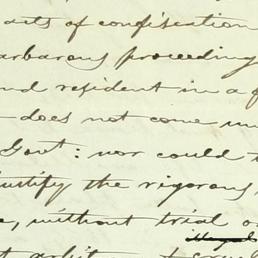 acts of confiscation
barbarous proceeding
and resident in a
does not come un
Govt: nor could t
justify the rigorous,
, without trial o
illegal
t arbit